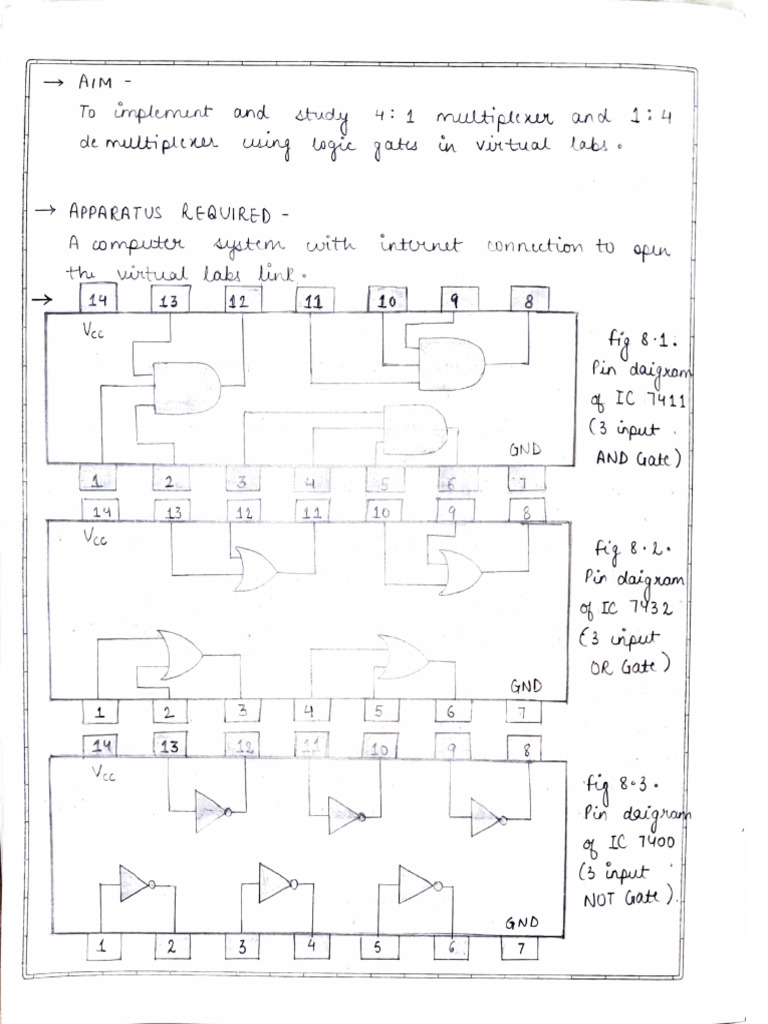 → AIM -
To implement and study 4:1 multiplexer and 1:4
demultiplexer using logic gates in virtual labs.
→ APPARATUS REQUIRED -
A computer system with internet connection to open
the virtual labs link.
→ 14 13 12 11 10 9 8
Vcc
GND
1 2 3 4 5 6 7
fig 8.1.
Pin daigram
of IC 7411
(3 input
AND Gate)
14 13 12 11 10 9 8
Vcc
GND
1 2 3 4 5 6 7
fig 8.2.
Pin daigram
of IC 7432
(3 input
OR Gate)
14 13 12 11 10 9 8
Vcc
GND
1 2 3 4 5 6 7
fig 8.3.
Pin daigram
of IC 7400
(3 input
NOT Gate).